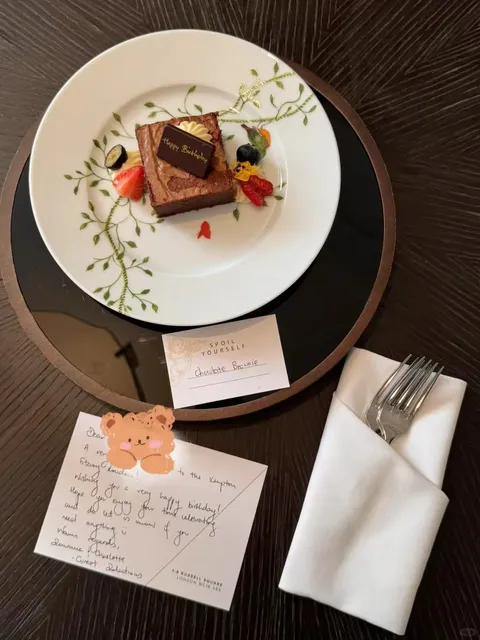 Happy Birthday
SPOIL
YOURSELF
Chocolate Brownie
Dear
A very to the Kimpton
Fitzroy London!
Wishing you a very happy birthday!
Hope you enjoy your time celebrating
and do let us know if you
need anything
Warm regards,
& Charlotte
- Guest Relations
1-8 RUSSELL SQUARE
LONDON WC1B 5BE